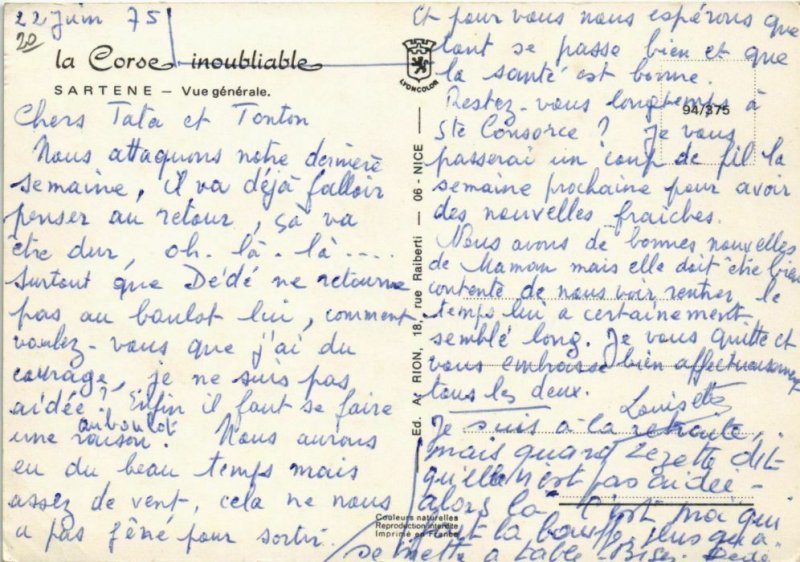 22 Juin 75
20
la Corse inoubliable
SARTENE – Vue générale.
LYONCOLOR
94/375
Chers Tata et Tonton
Nous attaquons notre dernière
semaine, il va déjà falloir
penser au retour, ça va
être dur, oh. là. là....
surtout que Dédé ne retourne
pas au boulot lui, comment
voulez-vous que j'ai du
courage, je ne suis pas
aidée? Enfin il faut se faire
une raison. Nous aurons
au boulot
eu du beau temps mais
assez de vent, cela ne nous
a pas gêné pour sortir.
Et pour vous nous espérons que
tout se passe bien et que
la santé est bonne.
Restez-vous longtemps à
Ste Consorce? Je vous
passerai un coup de fil la
semaine prochaine pour avoir
des nouvelles fraîches.
Nous avons de bonnes nouvelles
de Maman mais elle doit être bien
contente de nous voir rentrer, le
temps lui a certainement
semblé long. Je vous quitte et
vous embrasse bien affectueusement
tous les deux.
Louisette
Je suis à la retraite,
mais quand Zezette dit
qu'elle n'est pas aidée -
alors là - C'est moi qui
fait la bouffe, jusqu'à
se mette à table - Bises. Dédé
Ed. A. RION, 18, rue Raiberti — 06 - NICE —
Couleurs naturelles
Reproduction interdite
Imprimé en France